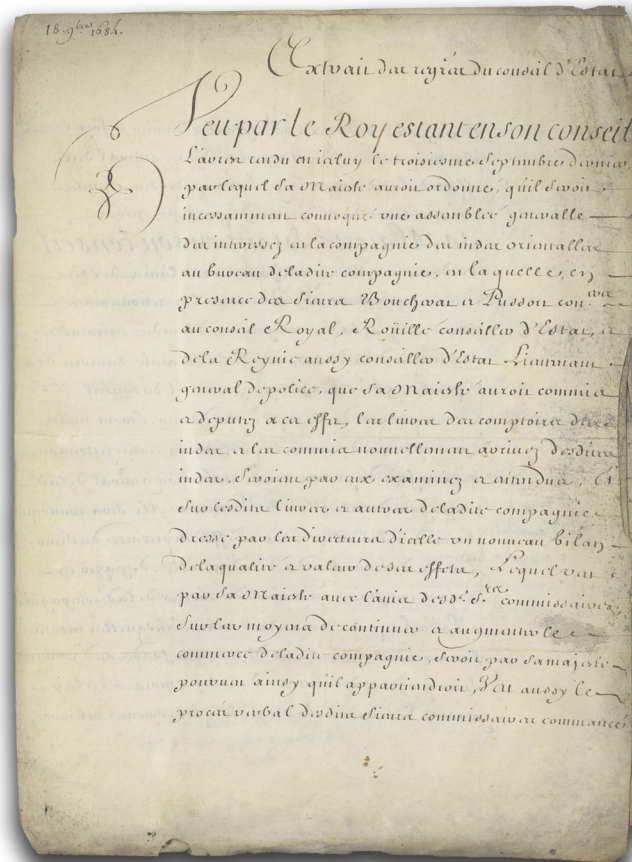 18. 9bre 1684.
Extrait des regrés du conseil d'Estat
Veu par le Roy estant en son conseil
L'arrest rendu en iceluy le troisiesme Septembre dernier,
par lequel Sa Maiste auroit ordonné, qu'il seroit
incessamment convoqué une assemblée generalle
des interessez en la compagnie des indes orientalles
au bureau de ladite compagnie, en laquelle, en
presence des sieurs Boucherat et Pussort coners
au conseil Royal, Roüillé conseiller d'Estat, et
de la Reynie aussy conseiller d'Estat Lieutenant
general de police, que Sa Maiste auroit commis
et deputez a cet effet, les livres des comptoirs des
indes et les commis nouvellement arrivez desdites
indes, seroient par eux examinez et entendus, Et
sur lesdits livres et autres de ladite compagnie
dressé par les directeurs d'icelle un nouveau bilan
de la qualité et valeur de ses effets, Lequel veu
par Sa Maiste avec l'avis desd. Srs commissaires
sur les moyens de continuer et augmenter le
commerce de ladite compagnie, seroit par sa majesté
pourveu ainsy qu'il appartiendroit, Veu aussy le
procés verbal desdits sieurs commissaires commancé